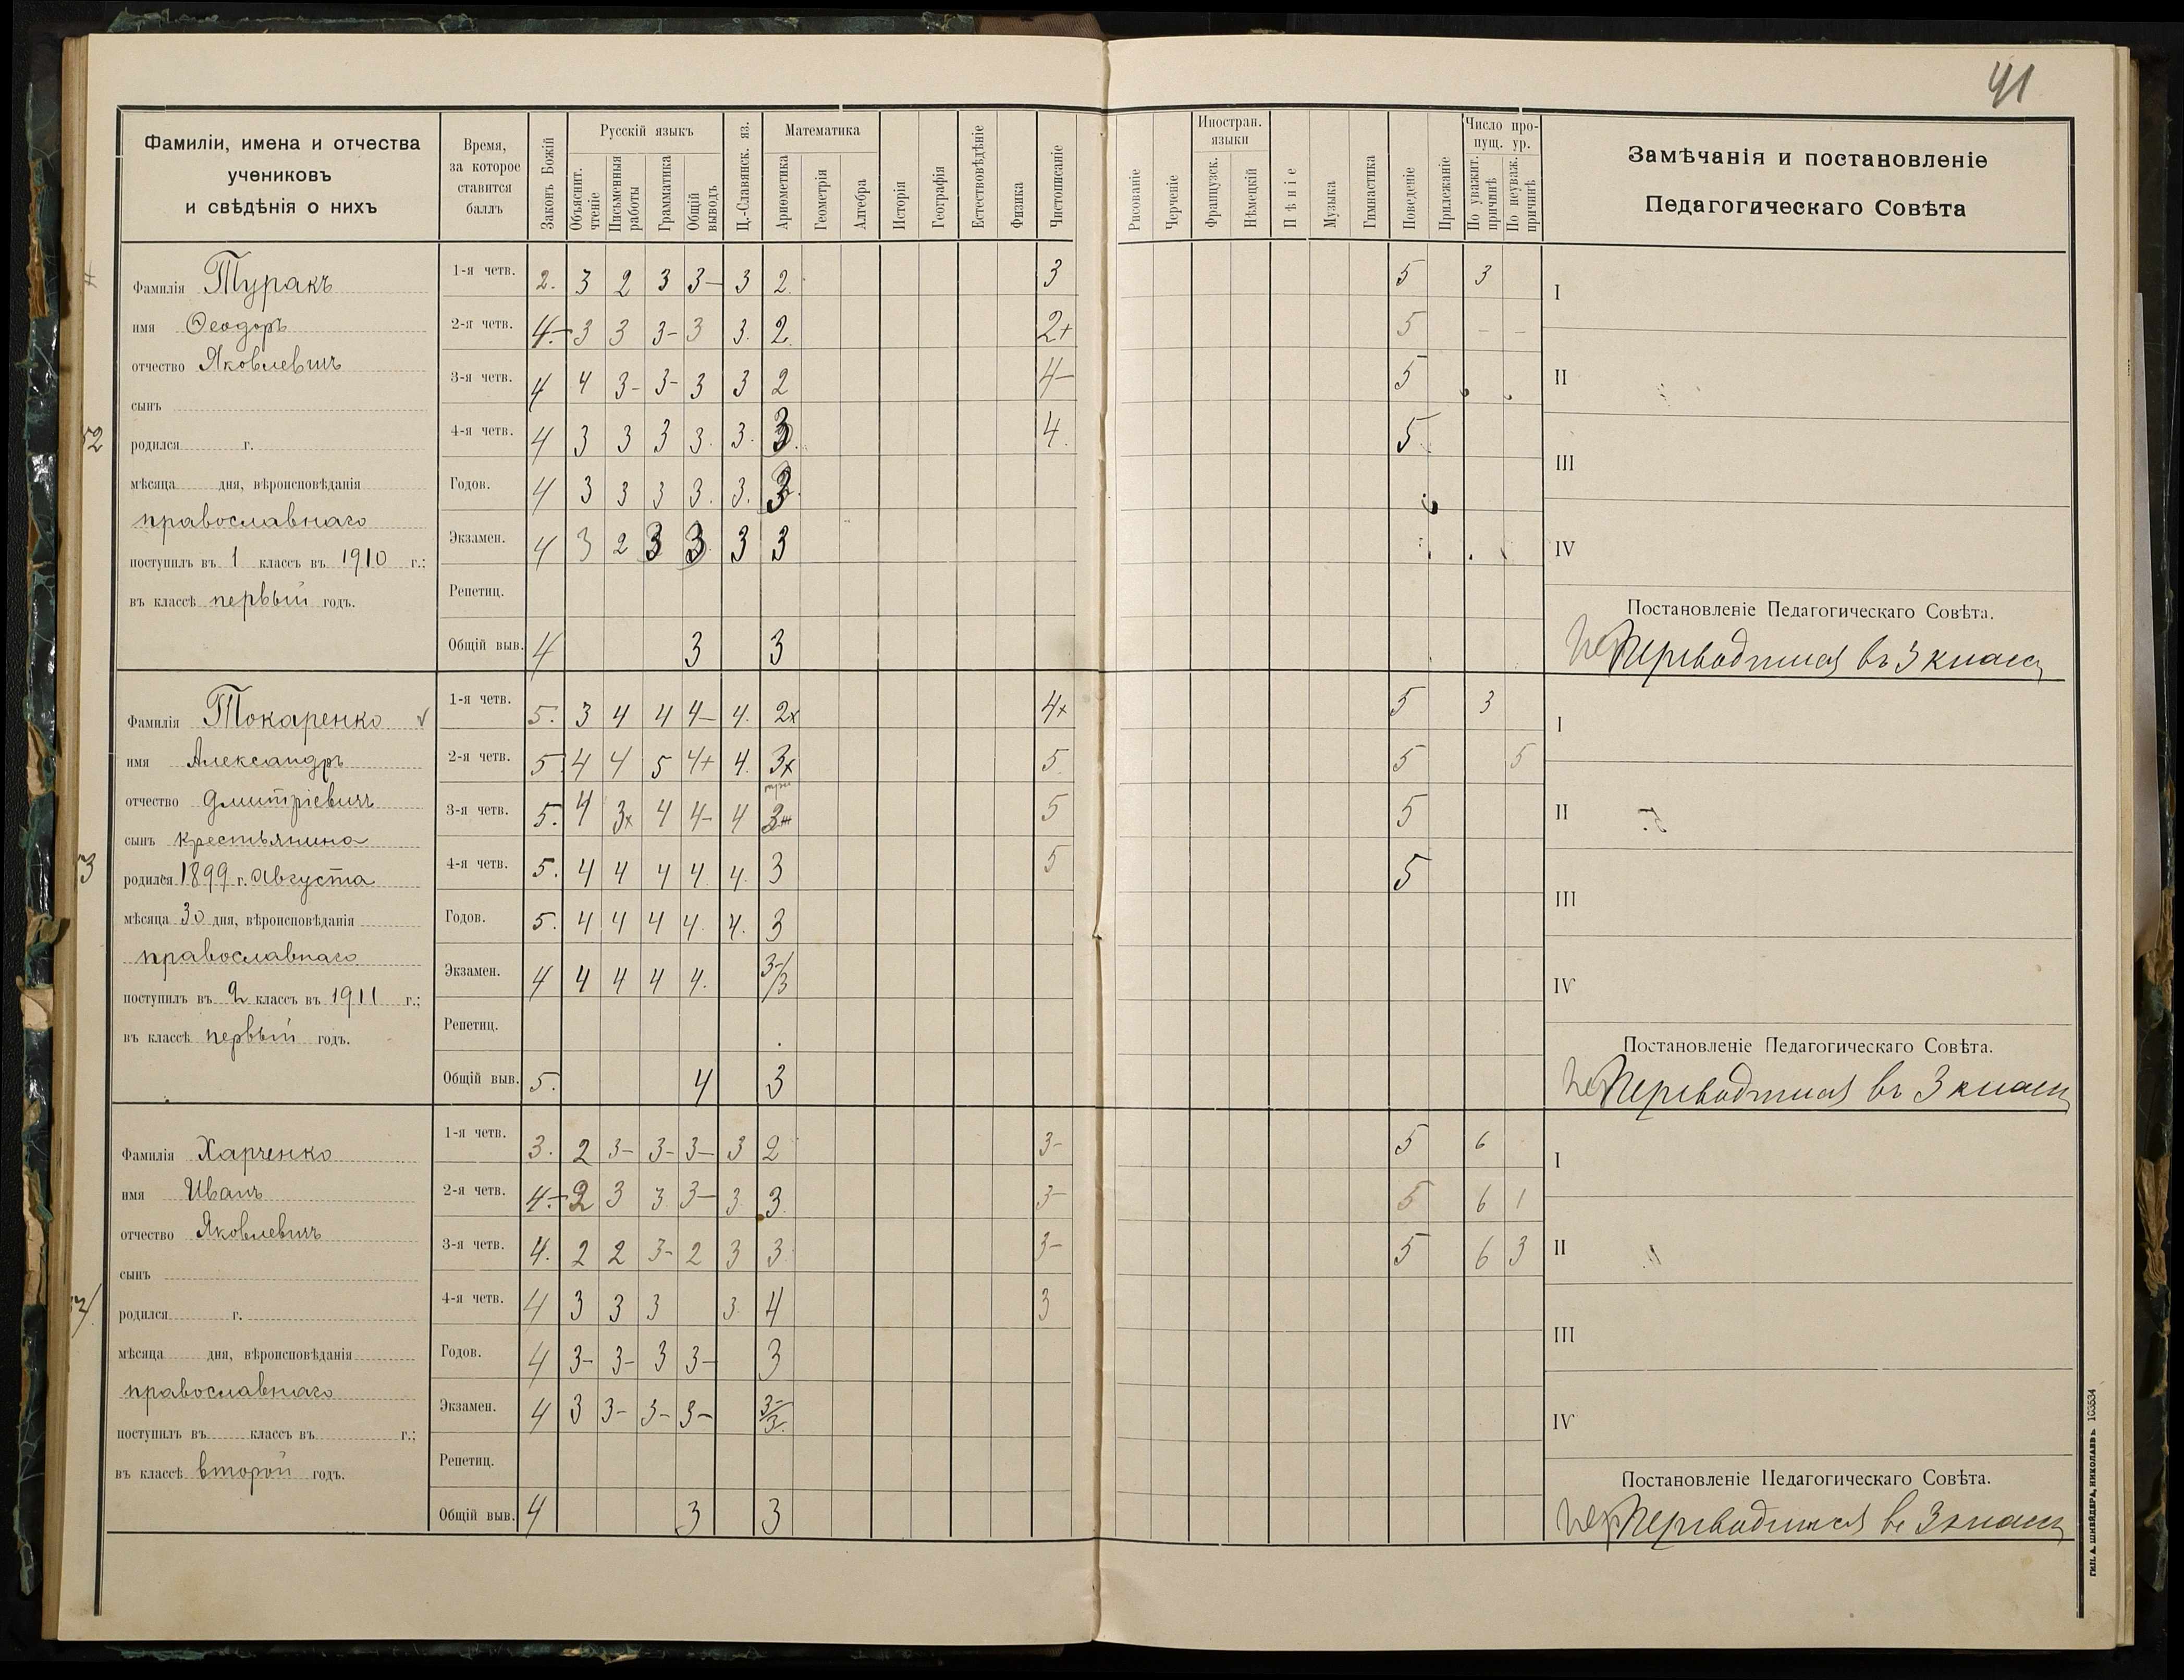 41
Фамиліи, имена и отчества
учениковъ
и свѣдѣнія о нихъ
Время,
за которое
ставится
баллъ
Законъ Божій
Русскій языкъ
Объяснит. чтеніе
Письменныя работы
Грамматика
Общій выводъ
Ц.-Славянск. яз.
Математика
Ариѳметика
Геометрія
Алгебра
Исторія
Географія
Естествовѣдѣніе
Физика
Чистописаніе
Рисованіе
Черченіе
Иностран. языки
Французск.
Нѣмецкій
Пѣніе
Музыка
Гимнастика
Поведеніе
Прилежаніе
Число пропущ. ур.
По уважит. причинѣ
По неуваж. причинѣ
Замѣчанія и постановленіе
Педагогическаго Совѣта
52
Фамилія Туракъ
имя Ѳеодоръ
отчество Яковлевичъ
сынъ
родился г.
мѣсяца дня, вѣроисповѣданія
православнаго
поступилъ въ 1 классъ въ 1910 г.:
въ классѣ первый годъ.
1-я четв. 2. 3 2 3 3- 3 2. 3 5 3
2-я четв. 4- 3 3 3- 3 3. 2. 2+ 5 - -
3-я четв. 4 4 3- 3- 3 3 2 4- 5
4-я четв. 4 3 3 3 3. 3. 3. 4. 5
Годов. 4 3 3 3 3. 3. 3.
Экзамен. 4 3 2 3 3 3 3
Репетиц.
Общій выв. 4 3 3
I
II
III
IV
Постановленіе Педагогическаго Совѣта.
Переводится въ 3 классъ
Фамилія Токаренко
имя Александръ
отчество Дмитріевичъ
сынъ крестьянина
родился 1899 г. Августа
мѣсяца 30 дня, вѣроисповѣданія
православнаго
поступилъ въ 2 классъ въ 1911 г.;
въ классѣ первый годъ.
1-я четв. 5. 3 4 4 4- 4. 2+ 4+ 5 3
2-я четв. 5 4 4 5 4+ 4. 3+ 5. 5 5
3-я четв. 5. 4 3+ 4 4- 4 3 5 5
4-я четв. 5. 4 4 4 4. 4. 3 5 5
Годов. 5. 4 4 4 4. 4. 3
Экзамен. 4 4 4 4 4. 3-/3
Репетиц.
Общій выв. 5. 4 3
I
II
III
IV
Постановленіе Педагогическаго Совѣта.
Переводится въ 3 классъ
Фамилія Харченко
имя Иванъ
отчество Яковлевичъ
сынъ
родился г.
мѣсяца дня, вѣроисповѣданія
православнаго
поступилъ въ классъ въ г.;
въ классѣ второй годъ.
1-я четв. 3. 2 3- 3- 3- 3 2 3- 5 6
2-я четв. 4- 2 3 3 3- 3. 3. 3- 5 6 1
3-я четв. 4. 2 2 3- 2 3 3 3- 5 6 3
4-я четв. 4 3 3 3 3. 4 3
Годов. 4 3- 3- 3 3- 3
Экзамен. 4 3 3- 3- 3- 3-/3.
Репетиц.
Общій выв. 4 3 3
I
II
III
IV
Постановленіе Педагогическаго Совѣта.
Переводится въ 3 классъ
ТИП. А. ШНЕЙДЕРА, НИКОЛАЕВЪ. 103534